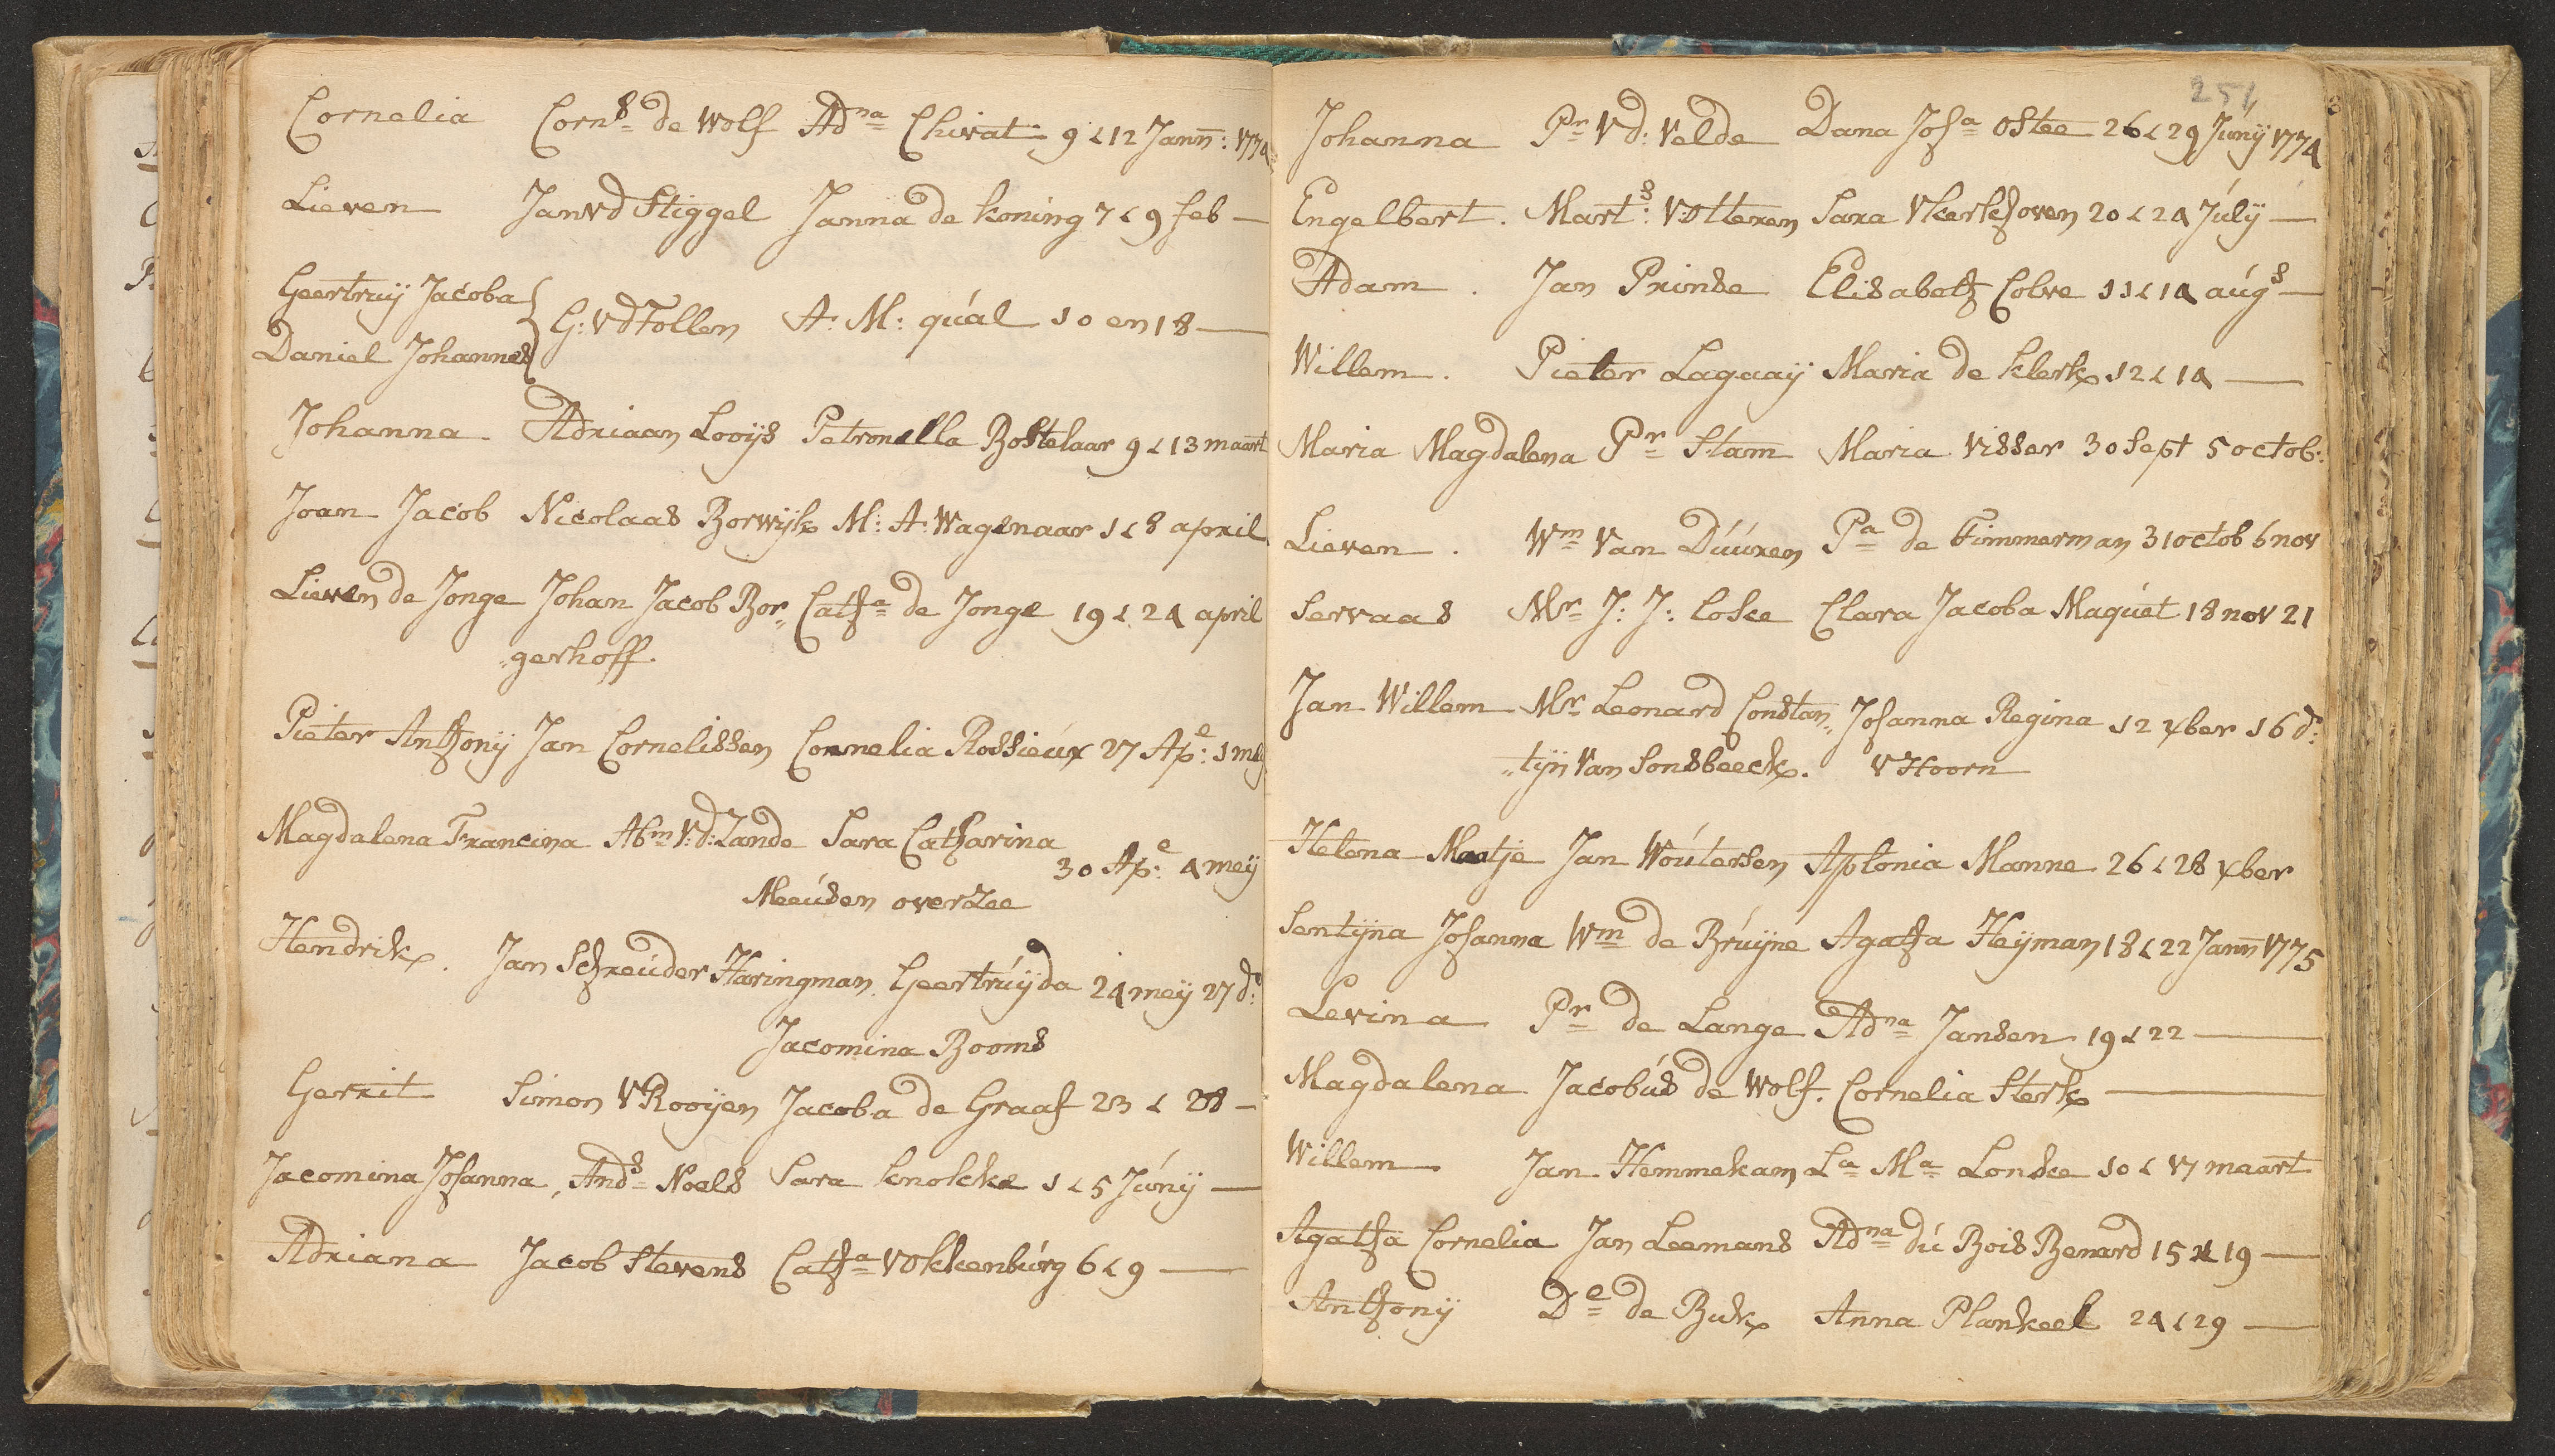 Cornelia Corns de Wolf Adna Chivat 9 < 12 Jann: 1774
Lieven Jan vd Stiggel Janna de koning 7 < 9 feb —
Geertruij Jacoba
G: vd Tollen A: M: quál 10 en 18 —
Daniel Johannes
Johanna. Adriaan Looijs Petronella Bostelaar 9 < 13 maart
Joan Jacob Nicolaas Borwijk M: A: Wagenaar 1 < 8 april
Lieven de Jonge Johan Jacob Bor„ Catha de Jonge 19 < 24 april
„gerhoff.
Pieter Anthonij Jan Cornelissen Cornelia Rossieúx 27 Ape: 1 meij
Magdalena Francina Abm V:d: Zande Sara Catharina
30 Ape: 4 meij
Meeúsen overzee
Hendrik. Jan Schreúder Haringman Geertrúijda 24 meij 27 do:
Jacomina Booms
Gerrit Simon V Rooijen Jacoba de Graaf 23 < 28 —
Jacomina Johanna, Ands Noels Sara knolcke 1 < 5 Júnij —
Adriana Jacob Stevens Catha V Okkenbúrg 6 < 9 —
251
Johanna Pr Vd: Velde Dana Joha Ostee 26 < 29 Júnij 1774
Engelbert. Marts: V Otteren Sara V kerkhoven 20 < 24 Júlij —
Adam. Jan Prinse Elisabeth Colve 11 < 14 aúgs —
Willem. Pieter Lagaaij Maria de klerk 12 < 14 —
Maria Magdalena Pr Stam Maria Visser 30 Sept 5 octob:
Lieven. Wm Van Dúúren Pa de Timmerman 31 octob 6 nov
Servaas Mr J: J: Loke Clara Jacoba Maqúet 18 nov 21
Jan Willem Mr Leonard Constan„ Johanna Regina 12 xber 16 do:
„tijn Van Sonsbeeck. V Hoorn
Helena Maatje Jan Woútersen Aplonia Manne 26 < 28 xber
Sentijna Johanna Wm de Brúijne Agatha Heijman 18 < 22 Jann 1775
Levina Pr de Lange Adna Jansen 19 < 22 —
Magdalena Jacobús de Wolf. Cornelia Sterk —
Willem Jan Hemmekam La Ma Lonske 10 < 17 maart
Agatha Cornelia Jan Leemans Adna dú Bois Benard 15 < 19 —
Anthonij De de Buk Anna Plankeel 24 < 29 —